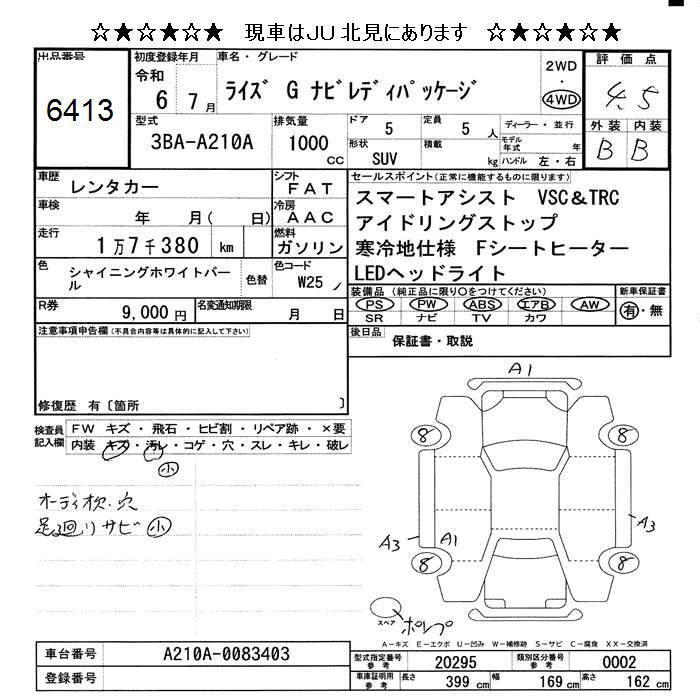 ☆★☆★☆★ 現車はJU北見にあります ☆★☆★☆★
出品番号
6413
初度登録年月
令和
6 7月
車名・グレード
ライズ G ナビレディパッケージ
2WD
・
4WD
評価点
4.5
外装 内装
B B
型式
3BA-A210A
排気量
1000
CC
ドア
5
定員
5 人
ディーラー・並行
形状
SUV
積載
kg
モデル年式
年
ハンドル 左・右
車歴
レンタカー
シフト
FAT
車検
年 月( 日)
冷房
AAC
走行
1万7千380 km
燃料
ガソリン
色
シャイニングホワイトパール
色替
色コード
W25
R券
9,000円
名変通知期限
月 日
セールスポイント(正常に機能するものに限ります)
スマートアシスト VSC&TRC
アイドリングストップ
寒冷地仕様 Fシートヒーター
LEDヘッドライト
装備品(純正品に限り○をつけてください)
PS PW ABS エアB AW
SR ナビ TV カワ
新車保証書
有・無
後日品
保証書・取説
注意事項申告欄(不具合内容等は具体的に記入して下さい)
修復歴 有〔箇所 〕
検査員記入欄
FW キズ・飛石・ヒビ割・リペア跡・×要
内装 キズ・汚レ・コゲ・穴・スレ・キレ・破レ
小
オーディオ欠・穴
足廻リサビ 小
A1
8 8
A3 A1 A3
8 8
スペア ポンプ
A-キズ E-エクボ U-凹み W-補修跡 S-サビ C-腐食 XX-交換済
車台番号
A210A-0083403
登録番号
型式指定番号
参考
20295
類別区分番号
参考
0002
車庫証明用
参考
長さ 399 cm 幅 169 cm 高さ 162 cm